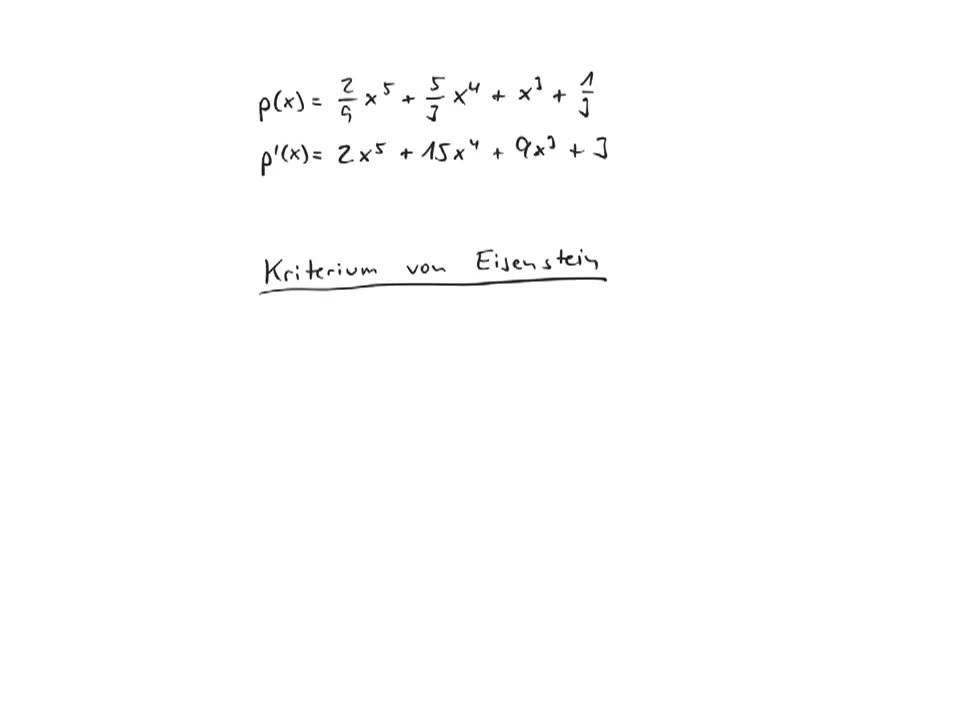 p(x) = 2/9 x⁵ + 5/3 x⁴ + x³ + 1/3
p'(x) = 2x⁵ + 15x⁴ + 9x³ + 3
Kriterium von Eisenstein